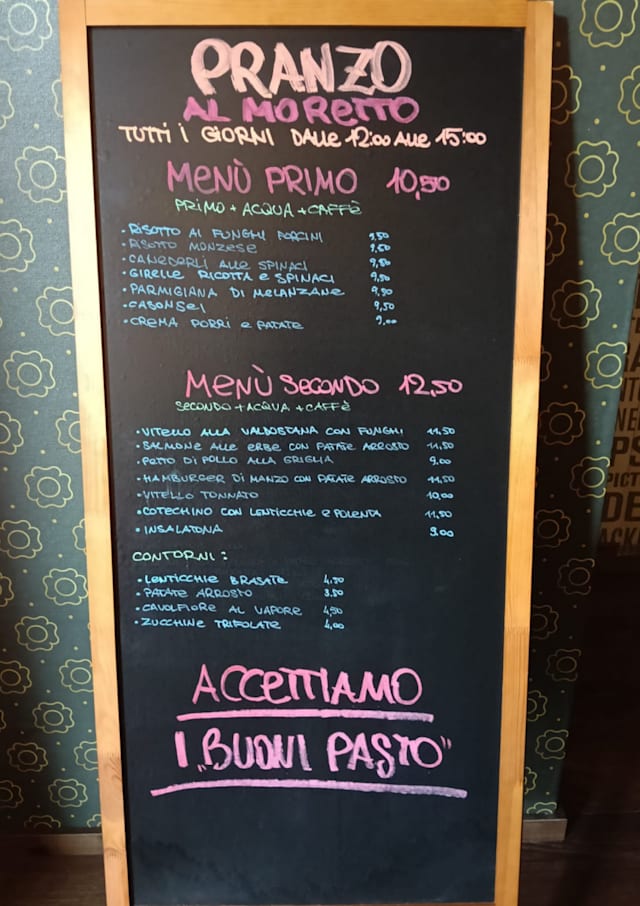 PRANZO
AL MORETTO
TUTTI I GIORNI DALLE 12:00 ALLE 15:00
MENÙ PRIMO 10,50
PRIMO + ACQUA + CAFFÈ
• RISOTTO AI FUNGHI PORCINI 9,50
• RISOTTO MONZESE 9,50
• CANEDERLI ALLE SPINACI 9,50
• GIRELLE RICOTTA E SPINACI 9,50
• PARMIGIANA DI MELANZANE 9,50
• CASONSEI 9,50
• CREMA PORRI E PATATE 9,00
MENÙ SECONDO 12,50
SECONDO + ACQUA + CAFFÈ
• VITELLO ALLA VALDOSTANA CON FUNGHI 11,50
• SALMONE ALLE ERBE CON PATATE ARROSTO 11,50
• PETTO DI POLLO ALLA GRIGLIA 9,00
• HAMBURGER DI MANZO CON PATATE ARROSTO 11,50
• VITELLO TONNATO 10,00
• COTECHINO CON LENTICCHIE E POLENTA 11,50
• INSALATONA 9.00
CONTORNI:
• LENTICCHIE BRASATE 4,50
• PATATE ARROSTO 3.50
• CAVOLFIORE AL VAPORE 4,50
• ZUCCHINE TRIFOLATE 4,00
ACCETTIAMO
I „BUONI PASTO"